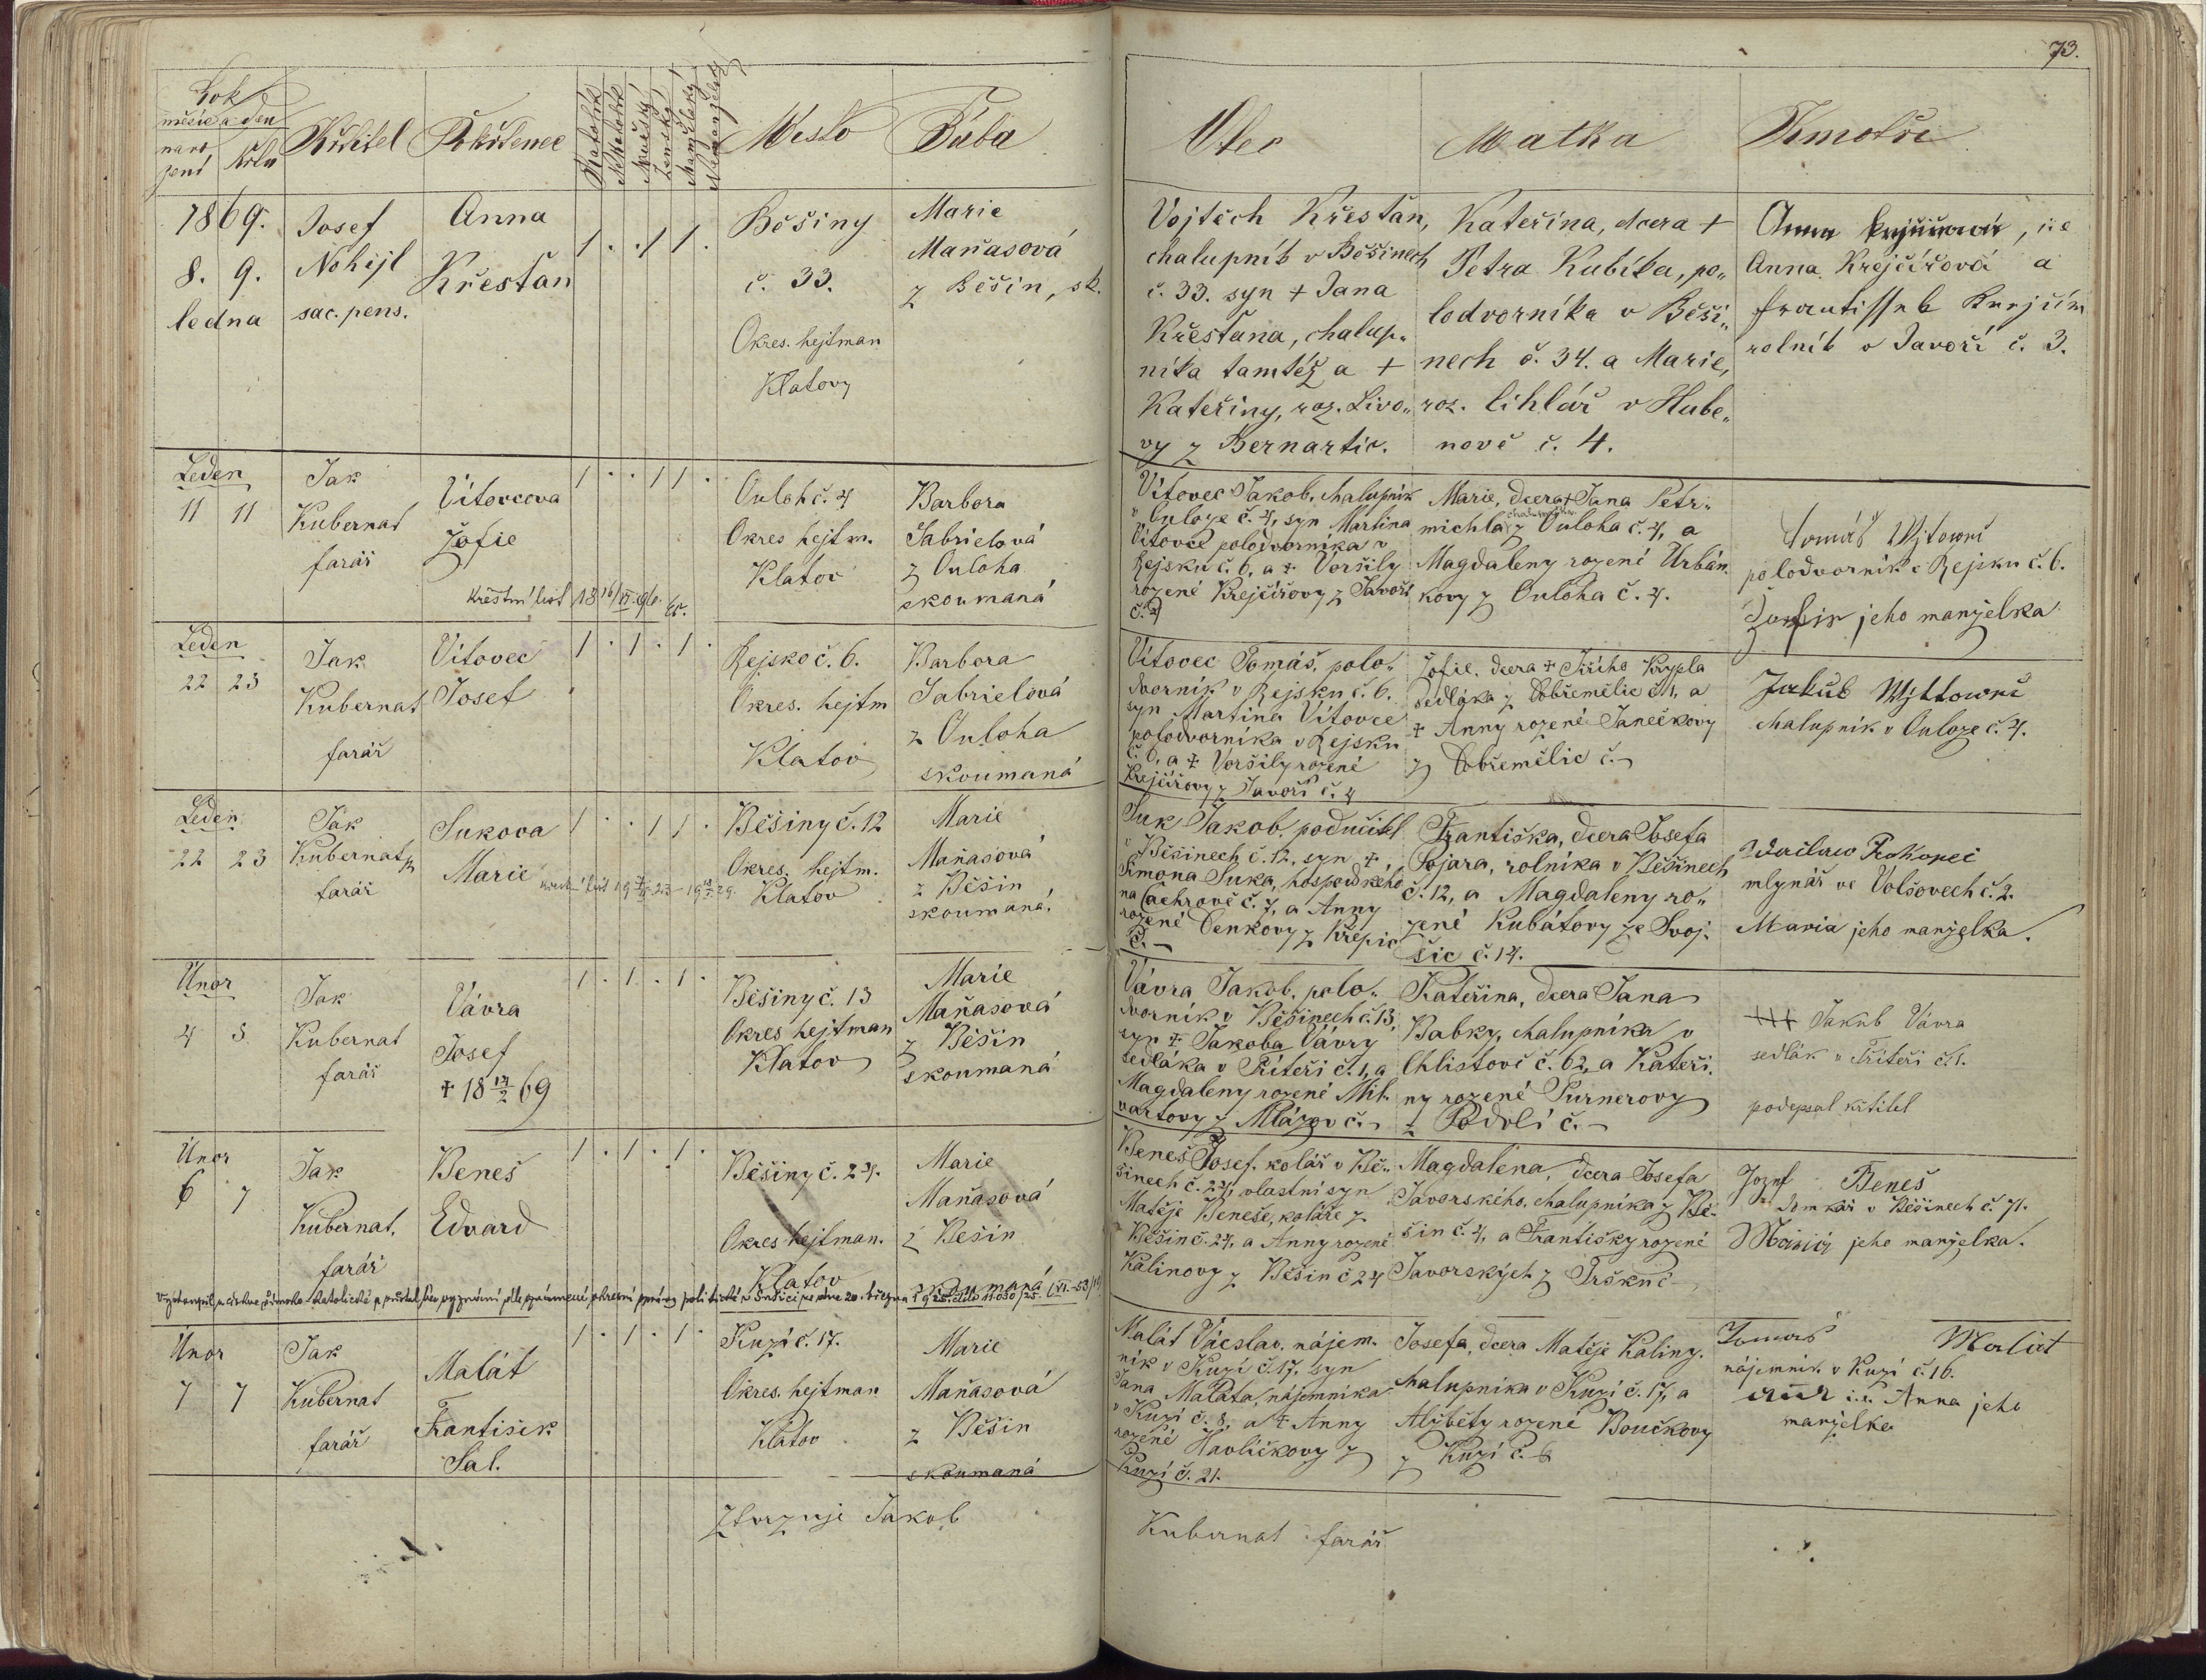 73.
Rok
měsíc a den
naro
zení
křtu
Křtitel
Pokřtěnec
Katolík
Nekatolík
Mužský
Ženský
Manželský
Nemanželský
Místo
Bába
Otec
Matka
Kmotři
1869.
8. 9.
ledna
Josef
Nohejl
sac. pens.
Anna
Křesťan
1 . . 1 1 .
Běšiny
č. 33.
Okres. hejtman
Klatovy
Marie
Maňasová
z Běšin, sk.
Vojtěch Křesťan,
chalupník v Běšinech
č. 33. syn + Jana
Křesťana, chalup„
níka tamtéž a +
Kateřiny, roz. Livo„
vy z Bernartic.
Kateřina, dcera +
Petra Kubíka, po„
lodvorníka v Běši„
nech č. 34. a Marie,
roz. Cihlář v Hube„
nově č. 4.
Anna
Anna Krejčířová a
rolník v Javoří č. 3.
Leden
11 11
Jak
Kubernat
farář
Vítovcova
Žofie
křestní list
1 . . 1 1 .
Ouloh č. 4
Okres hejtm.
Klatov
Barbora
Gabrielová
z Ouloha
skoumaná
Vítovec Jakob, chalupník
v Ouloze č. 4, syn Martina
Vítovce polodvorníka v
Rejsku č. 6, a + Voršily
rozené Krejčířovy z Javoří
č. 4
Marie, dcera + Jana Petr„
michla chalupníka z Ouloha č. 4, a
Magdaleny rozené Urbán„
kovy z Ouloha č. 4.
Tomáš
polodvorník v Rejsku č. 6.
jeho manželka
Leden
22 23
Jak
Kubernat
farář
Vítovec
Josef
1 . 1 . 1 .
Rejsko č. 6.
Okres. hejtm
Klatov
Barbora
Gabrielová
z Ouloha
skoumaná
Vítovec Tomáš, polo„
dvorník v Rejsku č. 6.
syn Martina Vítovce
polodvorníka v Rejsku
č. 6, a + Voršily rozené
Krejčířovy z Javoří č. 4
Žofie, dcera + Jiřího Krypla
sedláka z Dobřemělic č. 1, a
+ Anny rozené Janečkovy
z Dobřemělic č. –
Jakub
chalupník v Ouloze č. 4.
Leden
22 23
Jak
Kubernat
farář
Sukova
Marie
1 . . 1 1 .
Běšiny č. 12
Okres. hejtm.
Klatov
Marie
Maňasová
z Běšin
skoumaná.
Suk Jakob, podučitel
v Běšinech č. 12, syn +
Šimona Suka, hospodského
na Čachrově č. 7, a Anny
rozené Čenkovy z Křepic
č. –
Františka, dcera Josefa
Sojara, rolníka v Běšinech
č. 12, a Magdaleny ro„
zené Kubátovy ze Svoj„
šic č. 14.
Prokopec
mlynář ve Volšovech č. 2.
Maria jeho manželka.
Únor
4 5
Jak
Kubernat
farář
Vávra
Josef
+ 18 14/2 69
1 . 1 . 1 .
Běšiny č. 13
Okres hejtman
Klatov
Marie
Maňasová
z Běšin
skoumaná
Vávra Jakob, polo„
dvorník v Běšinech č. 13,
syn + Jakoba Vávry
sedláka v Příteři č. 1, a
Magdaleny rozené Mil„
vartovy z Mlázov č. –
Kateřina, dcera Jana
Babky, chalupníka v
Chlistově č. 62, a Kateři„
ny rozené Purnerovy
z Podolí č. –
+++ Jakub Vávra
sedlák v Příteři č. 1.
podepsal křtitel
Únor
6 7
Jak
Kubernat,
farář
Beneš
Edvard
1 . 1 . 1 .
Běšiny č. 24.
Okres hejtman.
Klatov
Marie
Maňasová
z Běšin
skoumaná
Beneš Josef, kolář v Bě„
šinech č. 24, vlastní syn
Matěje Beneše, koláře z
Běšin č. 24, a Anny rozené
Kalinovy z Běšin č 24
Magdalena, dcera Josefa
Javorského, chalupníka z Bě„
šin č. 4, a Františky rozené
Javorských z
Jozef Beneš
domkář v Běšinech č. 71.
jeho manželka.
Vystoupil z církve římsko-katolické
Únor
7 7
Jak
Kubernat
farář
Malát
František
Sal.
1 . 1 . 1 .
Kuzí č. 17.
Okres. hejtman
Klatov
Marie
Maňasová
z Běšin
skoumaná
Malát Václav, nájem„
ník v Kuzí č. 17, syn
Jana Maláta, nájemníka
v Kuzí č. 8, a + Anny
rozené Havlíčkovy z
Kuzí č. 21.
Josefa, dcera Matěje Kaliny,
chalupníka v Kuzí č. 17, a
Alžběty rozené Boučkovy
z Kuzí č. 6
Tomáš Malát
nájemník v Kuzí č. 16.
Anna jeho
manželka
Stvrzuje Jakob
Kubernat farář